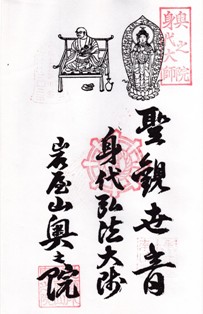 奥之院
身代大師
聖觀世音
身代弘法大師
岩屋山奥之院